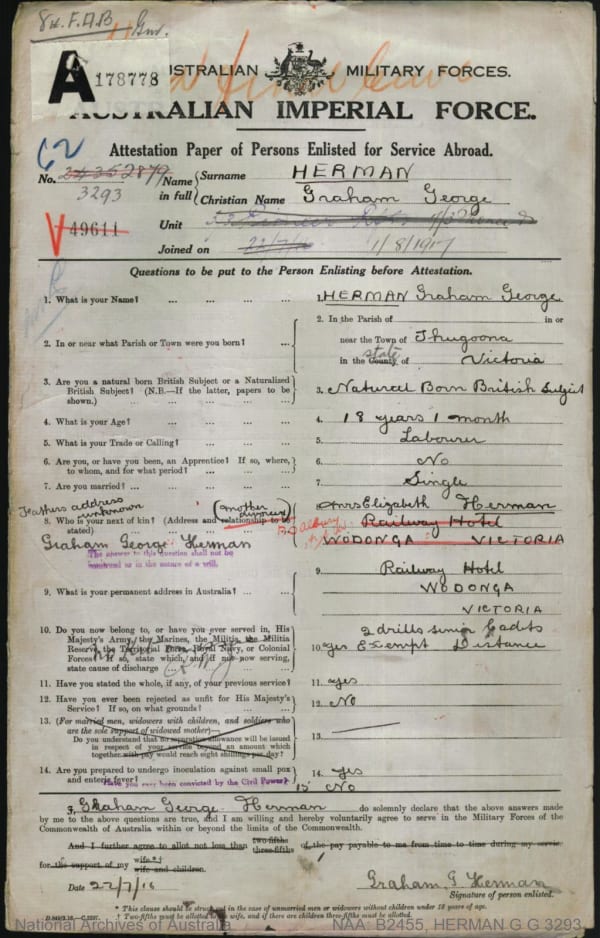 8th F.A.B
A 178778
AUSTRALIAN MILITARY FORCES.
AUSTRALIAN IMPERIAL FORCE.
Attestation Paper of Persons Enlisted for Service Abroad.
62
No. 2879
3293
Name in full
Surname HERMAN
Christian Name Graham George
V 49611
Unit
Joined on 22/7/16 1/8/1917
Questions to be put to the Person Enlisting before Attestation.
1. What is your Name? ... ... ... ... 1. HERMAN Graham George
2. In or near what Parish or Town were you born? ...
2. In the Parish of in or
near the Town of Thugoona
in the County of state Victoria
3. Are you a natural born British Subject or a Naturalized
British Subject? (N.B.—If the latter, papers to be
shown.) ... ... ... ...
3. Natural Born British Subject
4. What is your Age? ... ... ... ... 4. 18 years 1 month
5. What is your Trade or Calling? ... ... ... 5. Labourer
6. Are you, or have you been, an Apprentice? If so, where,
to whom, and for what period? ... ... ...
6. No
7. Are you married? ... ... ... ... 7. Single
Feathers address
unknown
(mother
8. Who is your next of kin? (Address and relationship to be
stated) ... ... ...
8. Mrs Elizabeth Herman
Railway Hotel
WODONGA VICTORIA
Graham George Herman
The answer to this question shall not be
construed as in the nature of a will.
9. What is your permanent address in Australia? ... ...
9. Railway Hotel
WODONGA
VICTORIA
10. Do you now belong to, or have you ever served in, His
Majesty's Army, the Marines, the Militia, the Militia
Reserve, the Territorial Force, Royal Navy, or Colonial
Forces? If so, state which, and if not now serving,
state cause of discharge ... ... ...
2 drills senior Cadets
10. yes Exempt Distance
11. Have you stated the whole, if any, of your previous service? 11. yes
12. Have you ever been rejected as unfit for His Majesty's
Service? If so, on what grounds? ... ... ...
12. No
13. (For married men, widowers with children, and soldiers who
are the sole support of widowed mother)—
Do you understand that no separation allowance will be issued
in respect of your service beyond an amount which
together with pay would reach eight shillings per day?
13.
14. Are you prepared to undergo inoculation against small pox
and enteric fever?
14. yes
Have you ever been convicted by the Civil Power?
15 No
I, Graham George Herman do solemnly declare that the above answers made
by me to the above questions are true, and I am willing and hereby voluntarily agree to serve in the Military Forces of the
Commonwealth of Australia within or beyond the limits of the Commonwealth.
And I further agree to allot not less than two-fifths three-fifths of the pay payable to me from time to time during my service
for the support of my wife
wife and children.
Date 22/7/16
Graham G Herman
Signature of person enlisted.
* This clause should be struck out in the case of unmarried men or widowers without children under 18 years of age.
† Two-fifths must be allotted to the wife, and if there are children three-fifths must be allotted.
National Archives of Australia NAA: B2455, HERMAN G G 3293